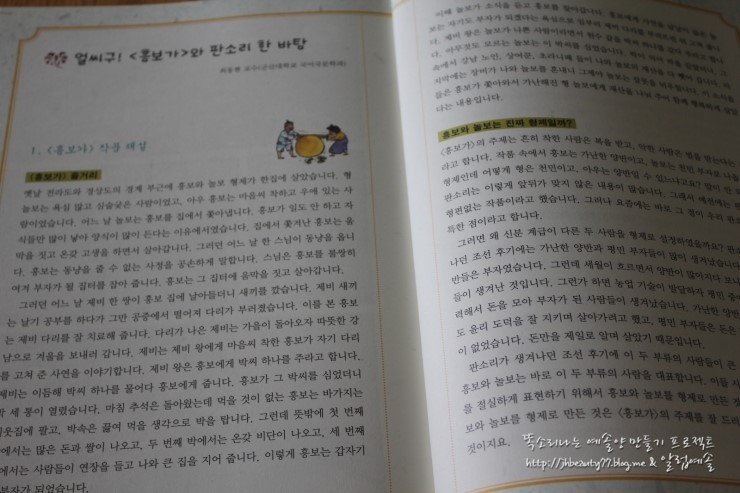 얼씨구! <흥보가>와 판소리 한 바탕
최동현 교수(군산대학교 국어국문학과)
1. <흥보가> 작품 해설
<흥보가> 줄거리
옛날 전라도와 경상도의 경계 부근에 흥보와 놀보 형제가 한집에 살았습니다. 형
놀보는 욕심 많고 심술궂은 사람이었고, 아우 흥보는 마음씨 착하고 우애 있는 사
람이었습니다. 어느 날 놀보는 흥보를 집에서 쫓아냅니다. 흥보가 일도 안 하고 자
식들만 많이 낳아 양식이 많이 든다는 이유에서였습니다. 집에서 쫓겨난 흥보는 움
박을 짓고 온갖 고생을 하면서 살아갑니다. 그러던 어느 날 한 스님이 동냥을 옵니
다. 흥보는 동냥을 줄 수 없는 사정을 공손하게 말합니다. 스님은 흥보를 불쌍히
여겨 부자가 될 집터를 잡아 줍니다. 흥보는 그 집터에 움막을 짓고 살아갑니다.
그러던 어느 날 제비 한 쌍이 흥보 집에 날아들더니 새끼를 깠습니다. 제비 새끼
는 날기 공부를 하다가 그만 공중에서 떨어져 다리가 부러졌습니다. 이를 본 흥보
는 제비 다리를 잘 치료해 줍니다. 다리가 나은 제비는 가을이 돌아오자 따뜻한 강
남으로 겨울을 보내러 갑니다. 제비는 제비 왕에게 마음씨 착한 흥보가 자기 다리
를 고쳐 준 사연을 이야기합니다. 제비 왕은 흥보에게 박씨 하나를 주라고 합니다.
제비는 이듬해 박씨 하나를 물어다 흥보에게 줍니다. 흥보가 그 박씨를 심었더니
박 세 통이 열렸습니다. 마침 추석은 돌아왔는데 먹을 것이 없는 흥보는 바가지는
이웃집에 팔고, 박속은 끓여 먹을 생각으로 박을 탑니다. 그런데 뜻밖에 첫 번째
에서는 많은 돈과 쌀이 나오고, 두 번째 박에서는 온갖 비단이 나오고, 세 번째
에서는 사람들이 연장을 들고 나와 큰 집을 지어 줍니다. 이렇게 흥보는 갑자기
부자가 되었습니다.
이때 놀보가 소식을 듣고 흥보를 찾아갑니다.
다는 내용입니다.
흥보와 놀보는 진짜 형제일까?
<흥보가>의 주제는 흔히 착한 사람은 복을 받고, 악한 사람은 벌을 받는다는
라고 합니다. 작품 속에서 흥보는 가난한 양반이고, 놀보는 천민 부자로 나옵
형제인데 어떻게 형은 천민이고, 아우는 양반일 수 있느냐고요? 말이 안 되
판소리는 이렇게 앞뒤가 맞지 않은 내용이 많습니다. 그래서 예전에는 판
형편없는 작품이라고 했습니다. 그러나 요즘에는 바로 그 점이 우리 판소
특한 점이라고 합니다.
그러면 왜 신분 계급이 다른 두 사람을 형제로 설정하였을까요? 판소
나던 조선 후기에는 가난한 양반과 평민 부자들이 많이 생겨났습니다.
반들은 부자였습니다. 그런데 세월이 흐르면서 양반이 많아지다 보니
들이 생겨난 것입니다. 그런가 하면 농업 기술이 발달하자 평민 중에
력해서 돈을 모아 부자가 된 사람들이 생겨났습니다. 가난한 양반
도 윤리 도덕을 잘 지키며 살아가려고 했고, 평민 부자들은 돈은
이 없었습니다. 돈만을 제일로 알며 살았기 때문입니다.
판소리가 생겨나던 조선 후기에 이 두 부류의 사람들이 큰
흥보와 놀보는 바로 이 두 부류의 사람을 대표합니다. 이들 사
를 절실하게 표현하기 위해서 흥보와 놀보를 형제로 만든
보와 놀보를 형제로 만든 것은 <흥보가>의 주제를 잘 드러
것이지요.
똑소리나는 예솔양 만들기 프로젝트
http://jhbeauty77.blog.me & 알럽예솔